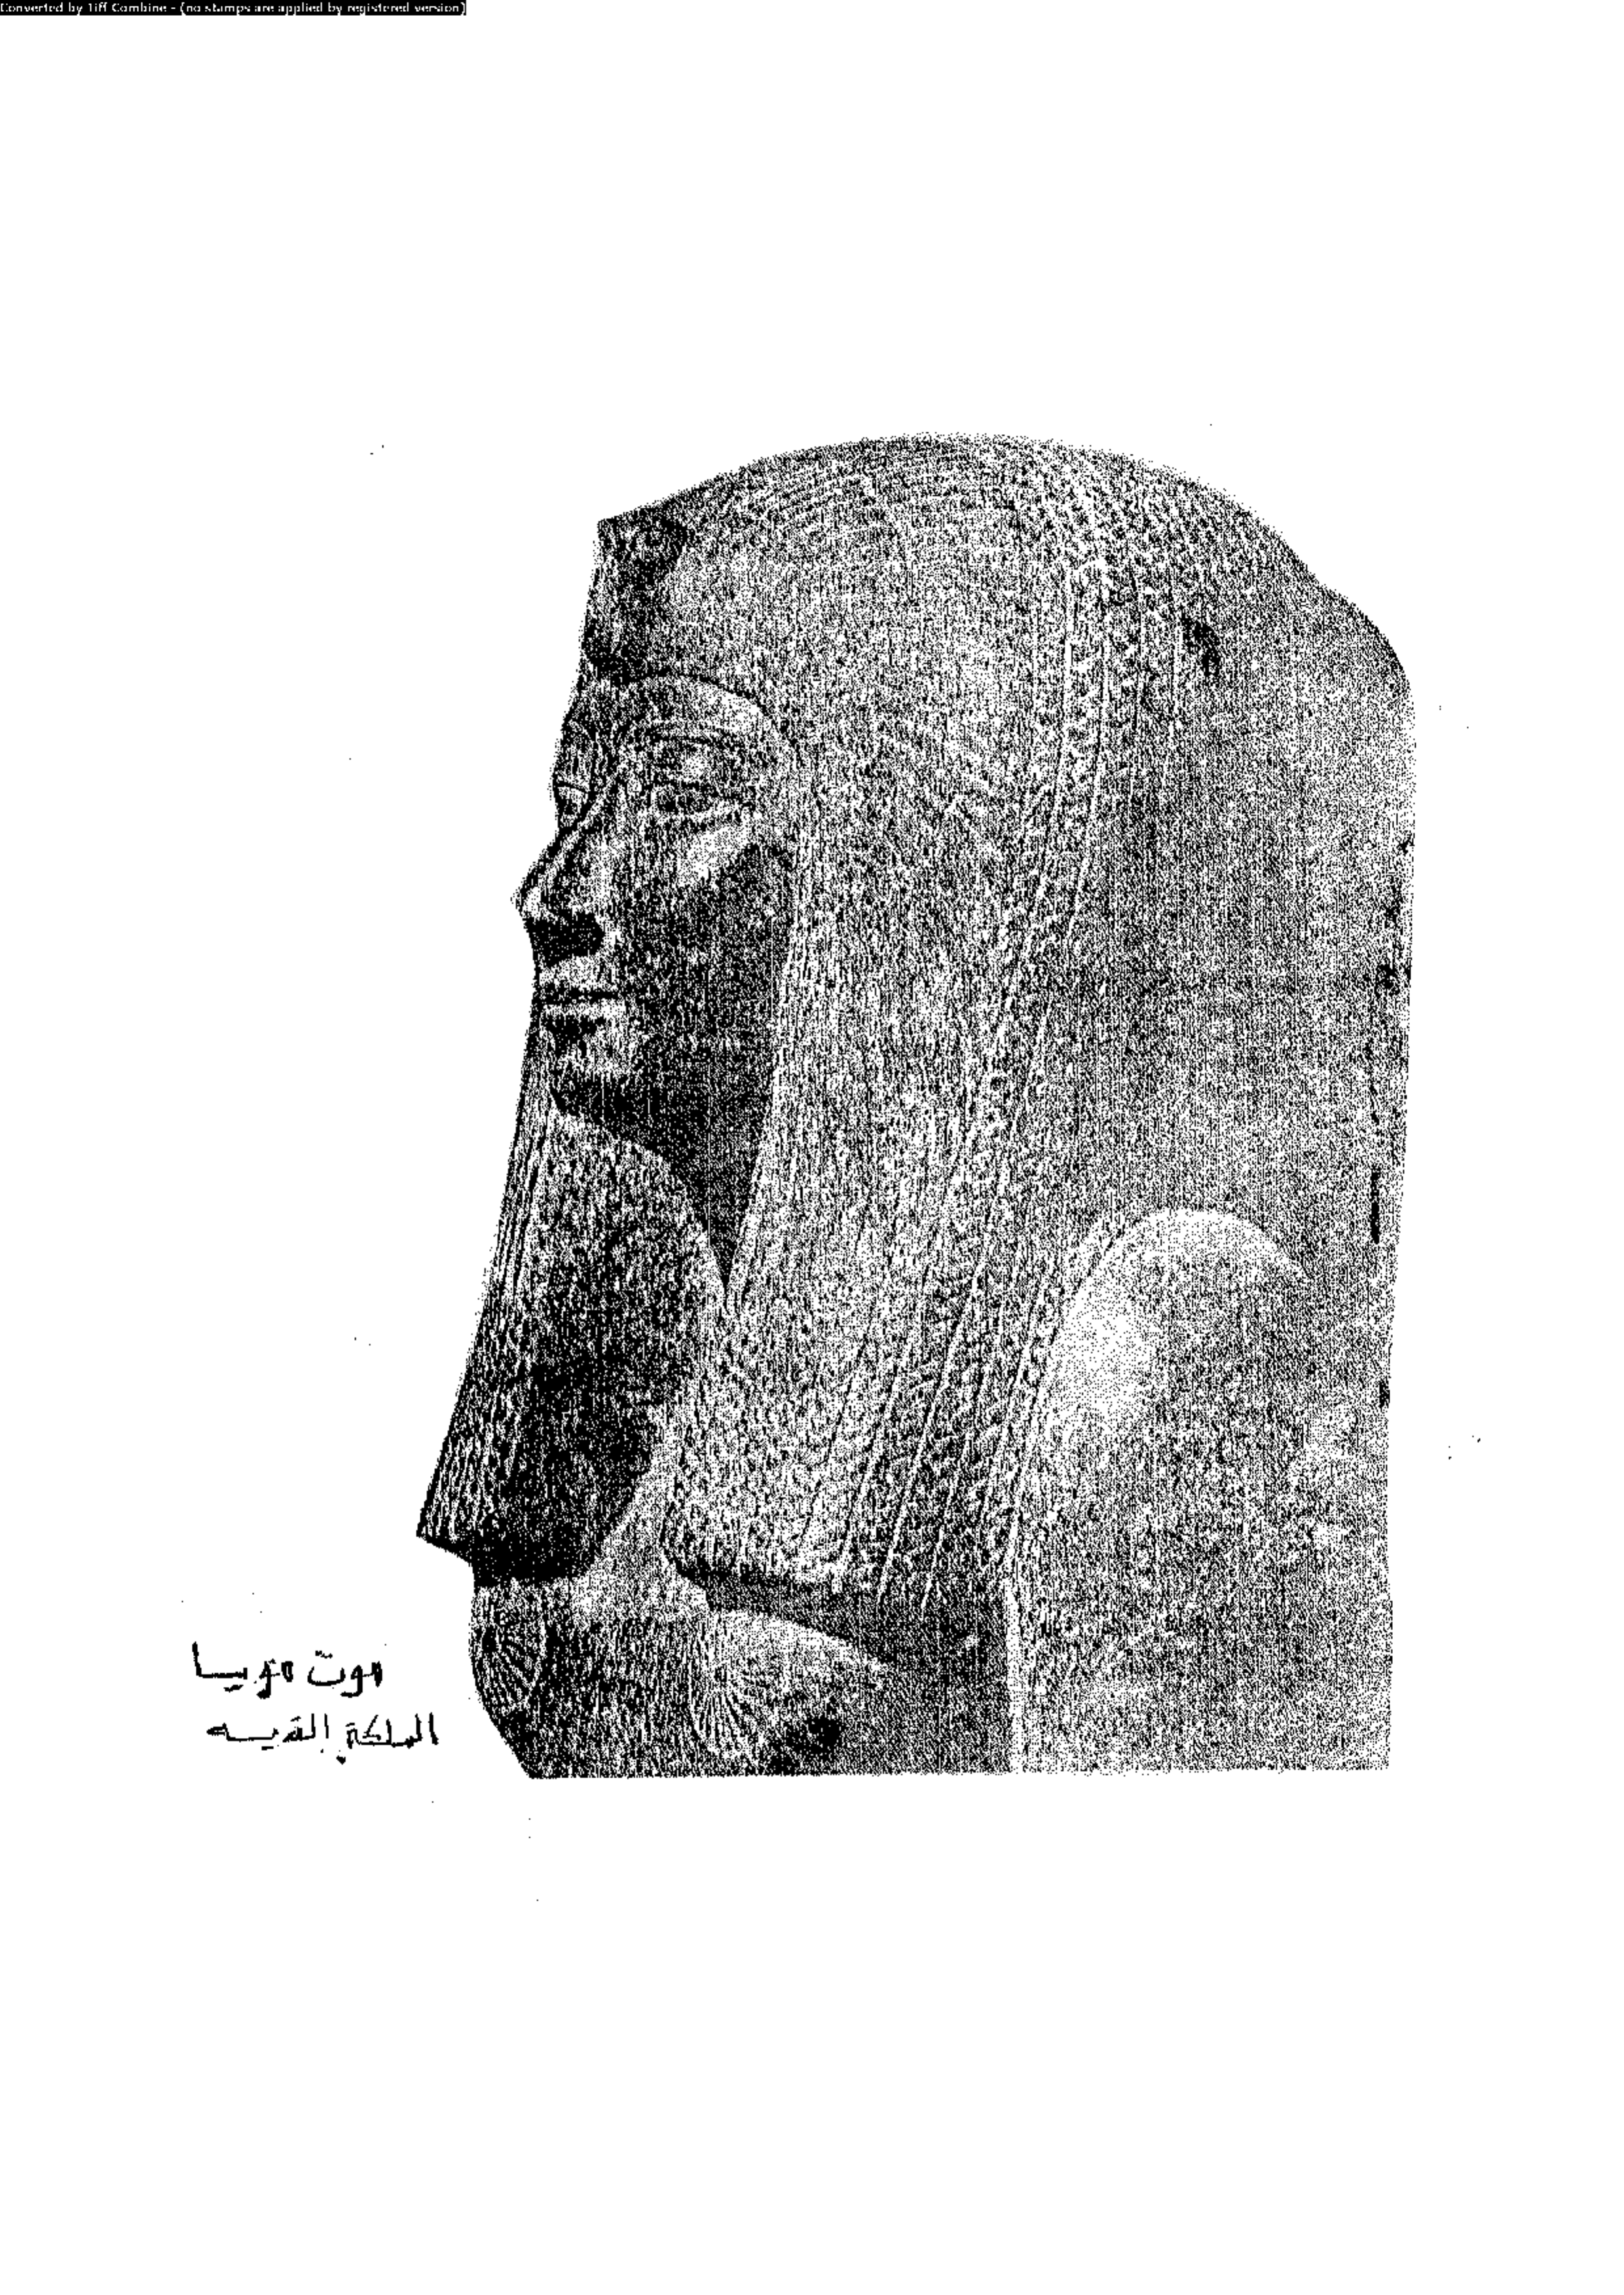 Converted by Tiff Combine - (no stamps are applied by registered version)
موت مويسا
الملكة القديسه